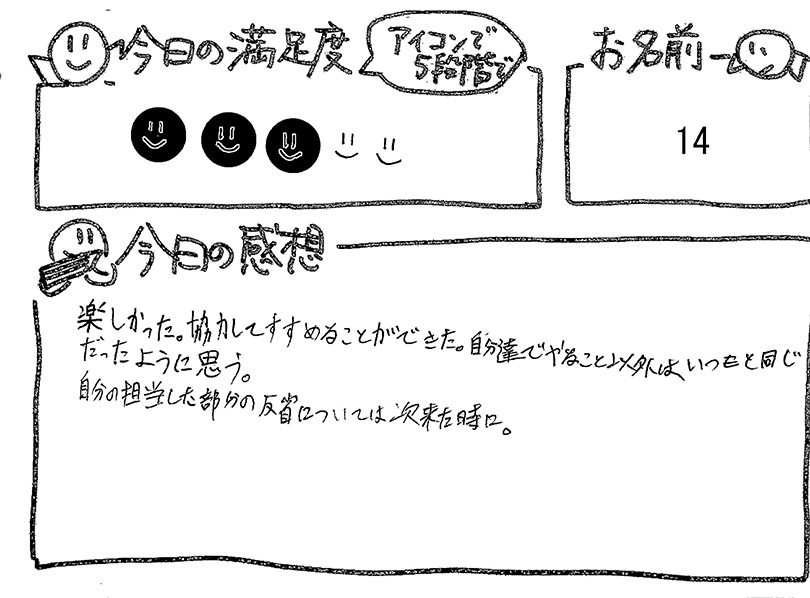 今日の満足度
アイコンで
5段階で
お名前
14
今日の感想
楽しかった。協力してすすめることができた。自分達でやること以外はいつもと同じ
だったように思う。
自分の担当した部分の反省については次来た時に。